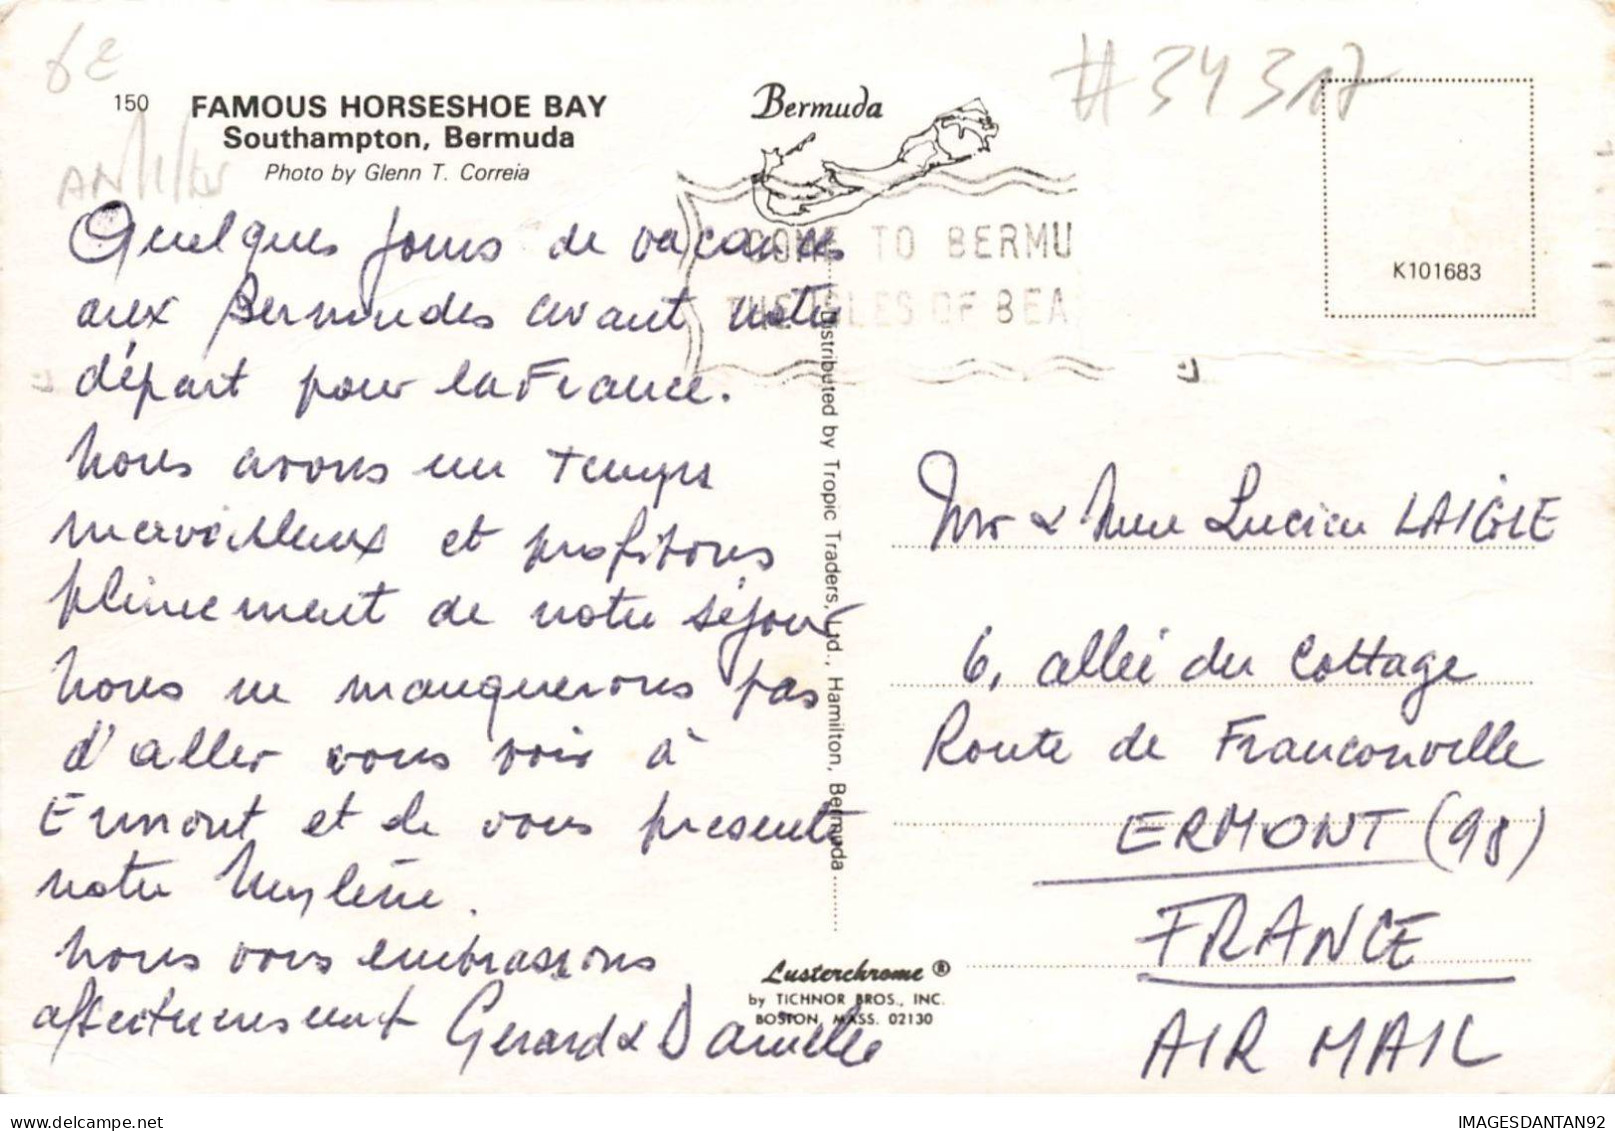 6€
#34317
150 FAMOUS HORSESHOE BAY
Southampton, Bermuda
Photo by Glenn T. Correia
Bermuda
COME TO BERMU
THE ISLES OF BEA
K101683
Quelques jours de vacances
aux Bermudes avant notre
départ pour la France.
Nous avons un temps
merveilleux et profitons
pleinement de notre séjour
Nous ne manquerons pas
d'aller vous voir à
Ermont et de vous présenter
notre Mylène.
Nous vous embrassons
affectueusement Gérard & Danielle
Distributed by Tropic Traders, Ltd., Hamilton, Bermuda
Lusterchrome ®
by TICHNOR BROS., INC.
BOSTON, MASS. 02130
Mr & Mme Lucien LAIGLE
6, allée du Cottage
Route de Franconville
ERMONT (98)
FRANCE
AIR MAIL
delcampe.net
IMAGESDANTAN92